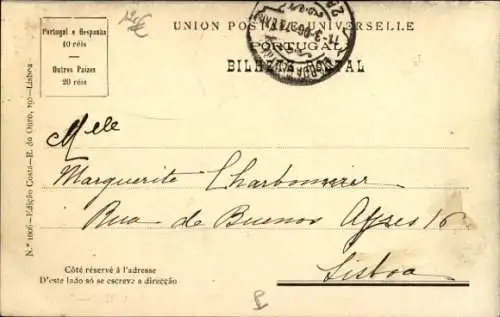 Portugal e Hespanha
10 réis
Outros Paizes
20 réis
UNION POSTALE UNIVERSELLE
PORTUGAL
BILHETE POSTAL
N.º 1006—Edição Costa—R. do Ouro, 295—Lisboa
Mele
Marguerite Charbonnier
Rua de Buenos Ayres 16
Lisboa
Côté réservé à l'adresse
D'este lado só se escreve a direcção